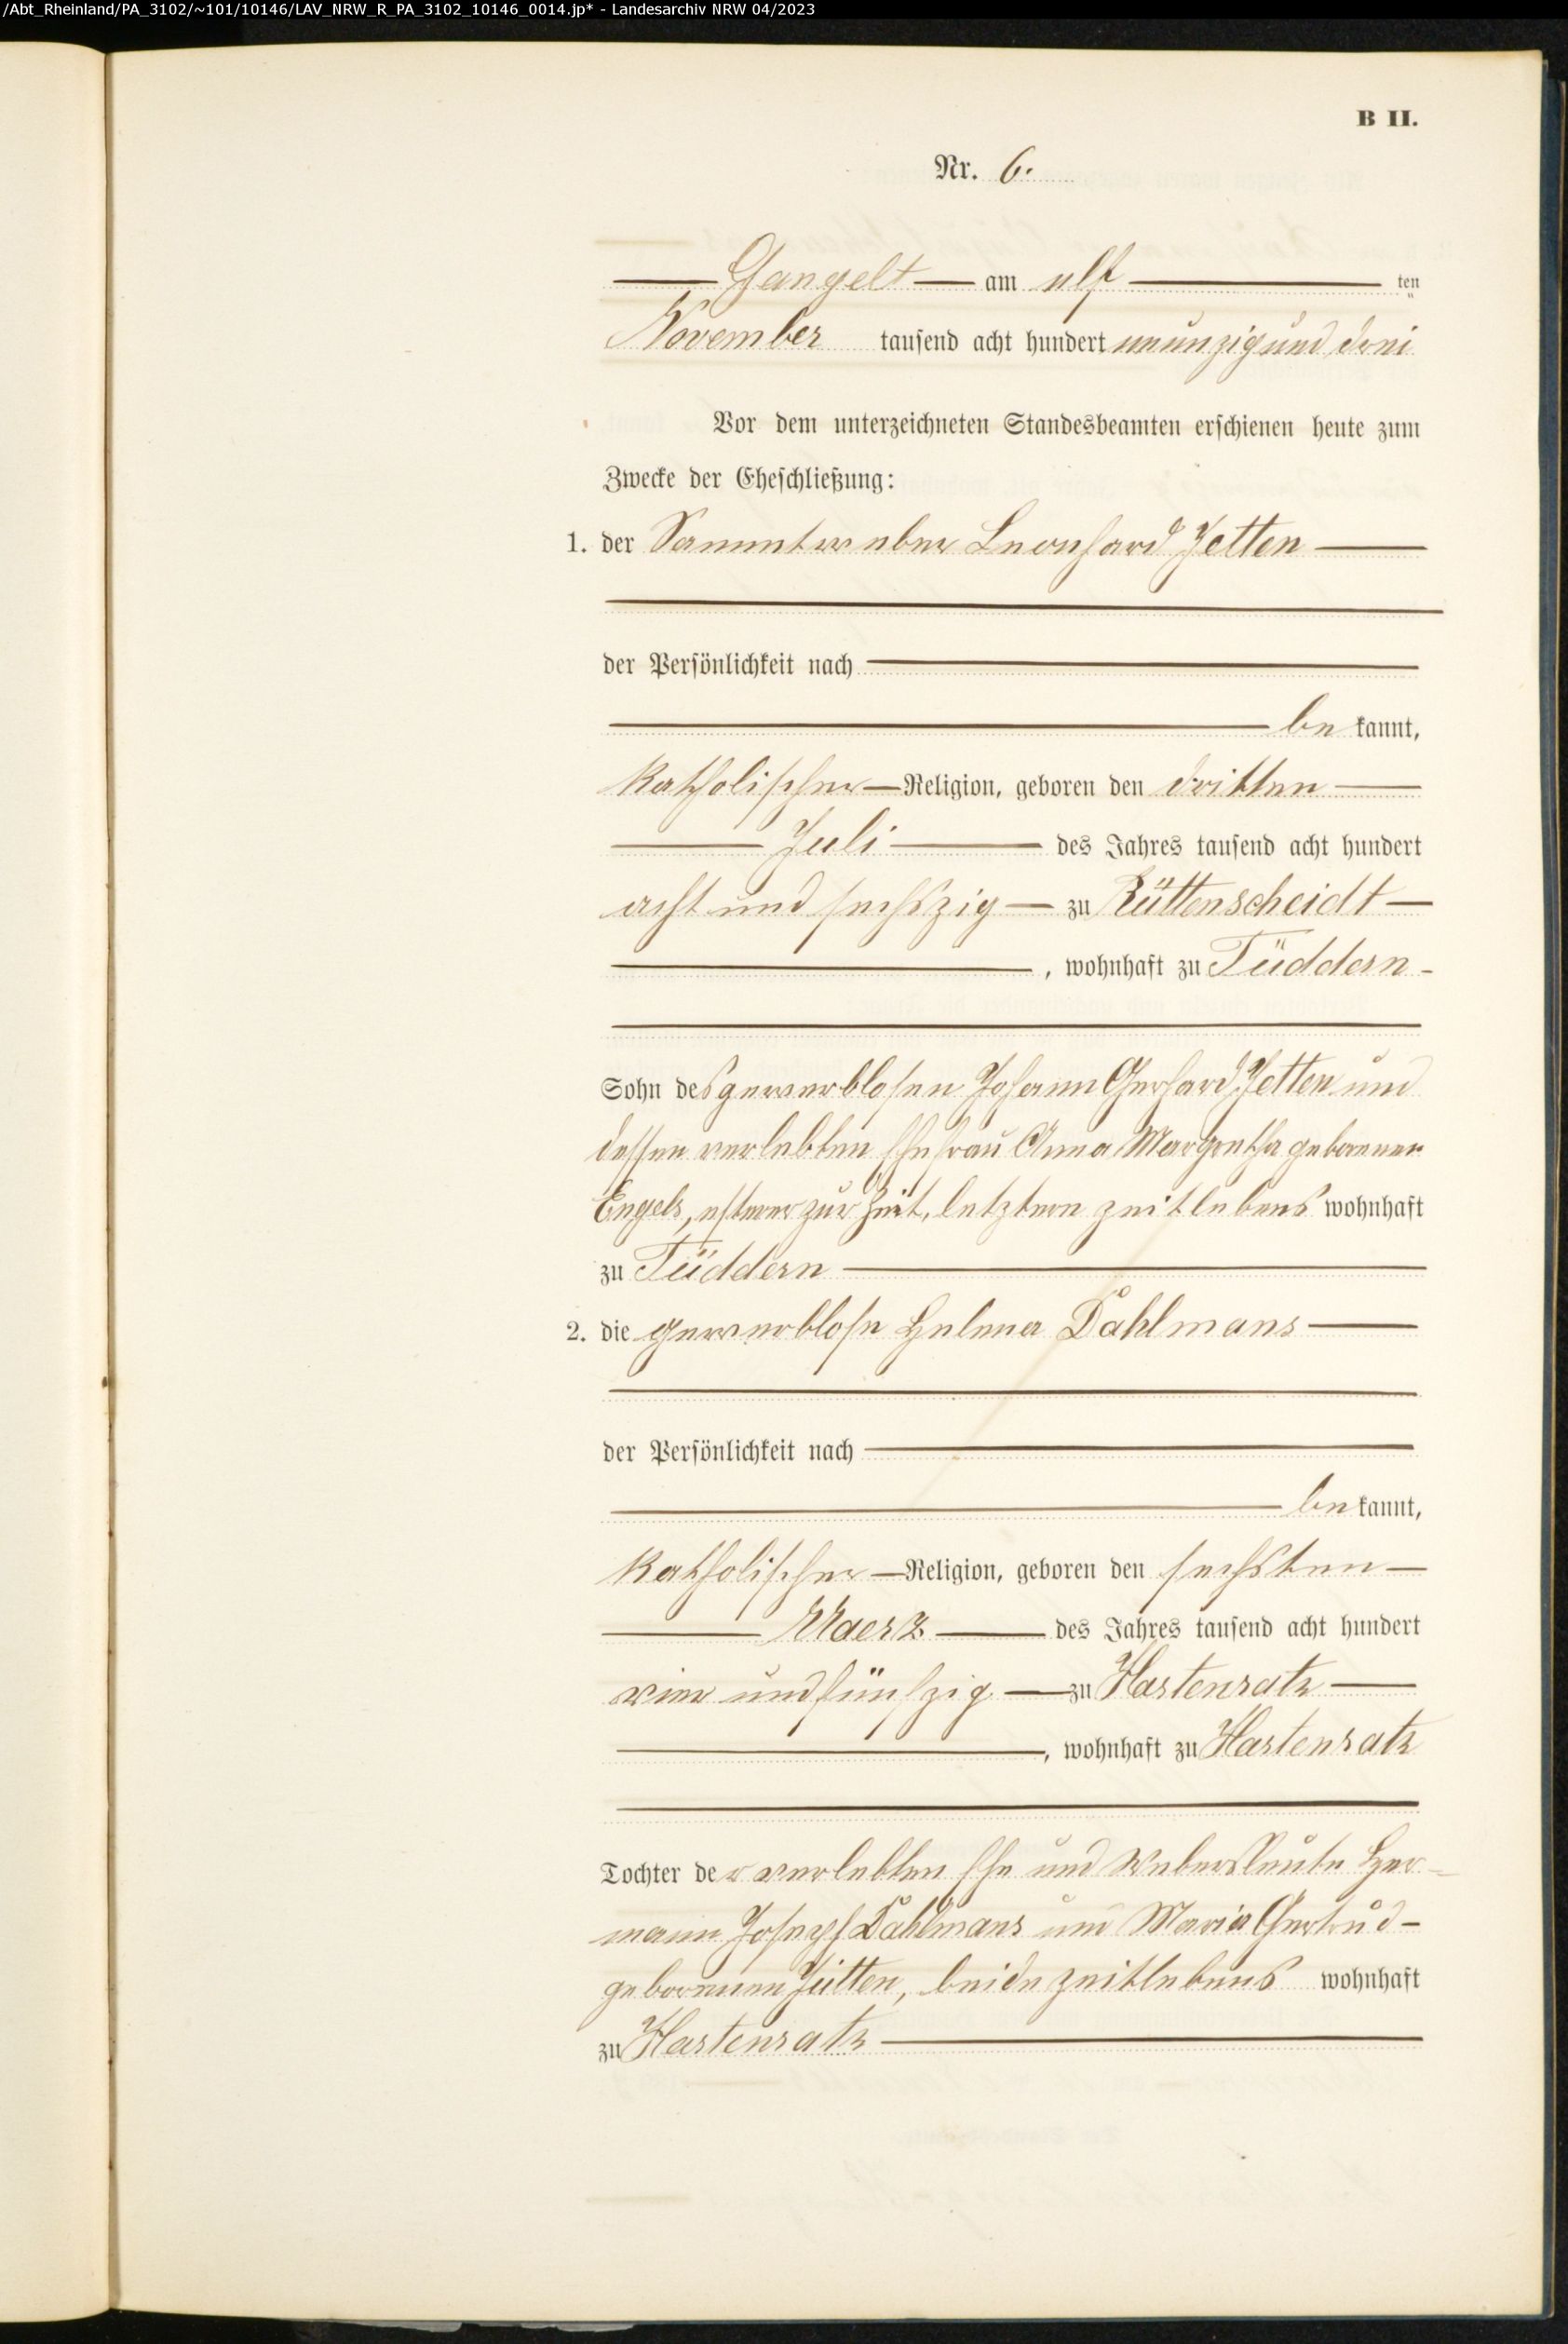 /Abt_Rheinland/PA_3102/~101/10146/LAV_NRW_R_PA_3102_10146_0014.jp* - Landesarchiv NRW 04/2023
B II.
Nr. 6.
Gangelt am elf ten
November tausend acht hundert neunzig und drei
Vor dem unterzeichneten Standesbeamten erschienen heute zum
Zwecke der Eheschließung:
1. der Sammtweber Leonhard Jetten
der Persönlichkeit nach
be kannt,
katholischer Religion, geboren den dritten
Juli des Jahres tausend acht hundert
acht und sechszig zu Rüttenscheidt
, wohnhaft zu Tüddern
Sohn des gewerblosen Johann Gerhard Jetten und
dessen verlebten Ehefrau Anna Margretha geborenen
Engels, ersterer zur Zeit, letztere zeitlebens wohnhaft
zu Tüddern
2. die gewerblose Helena Dahlmans
der Persönlichkeit nach
be kannt,
katholischer Religion, geboren den sechsten
Maerz des Jahres tausend acht hundert
vier und fünfzig zu Hastenrath
, wohnhaft zu Hastenrath
Tochter der verlebten Ehe und Webersleute Her-
mann Joseph Dahlmans und Maria Gertrud
geborenen Jütten, beide zeitlebens wohnhaft
zu Hastenrath